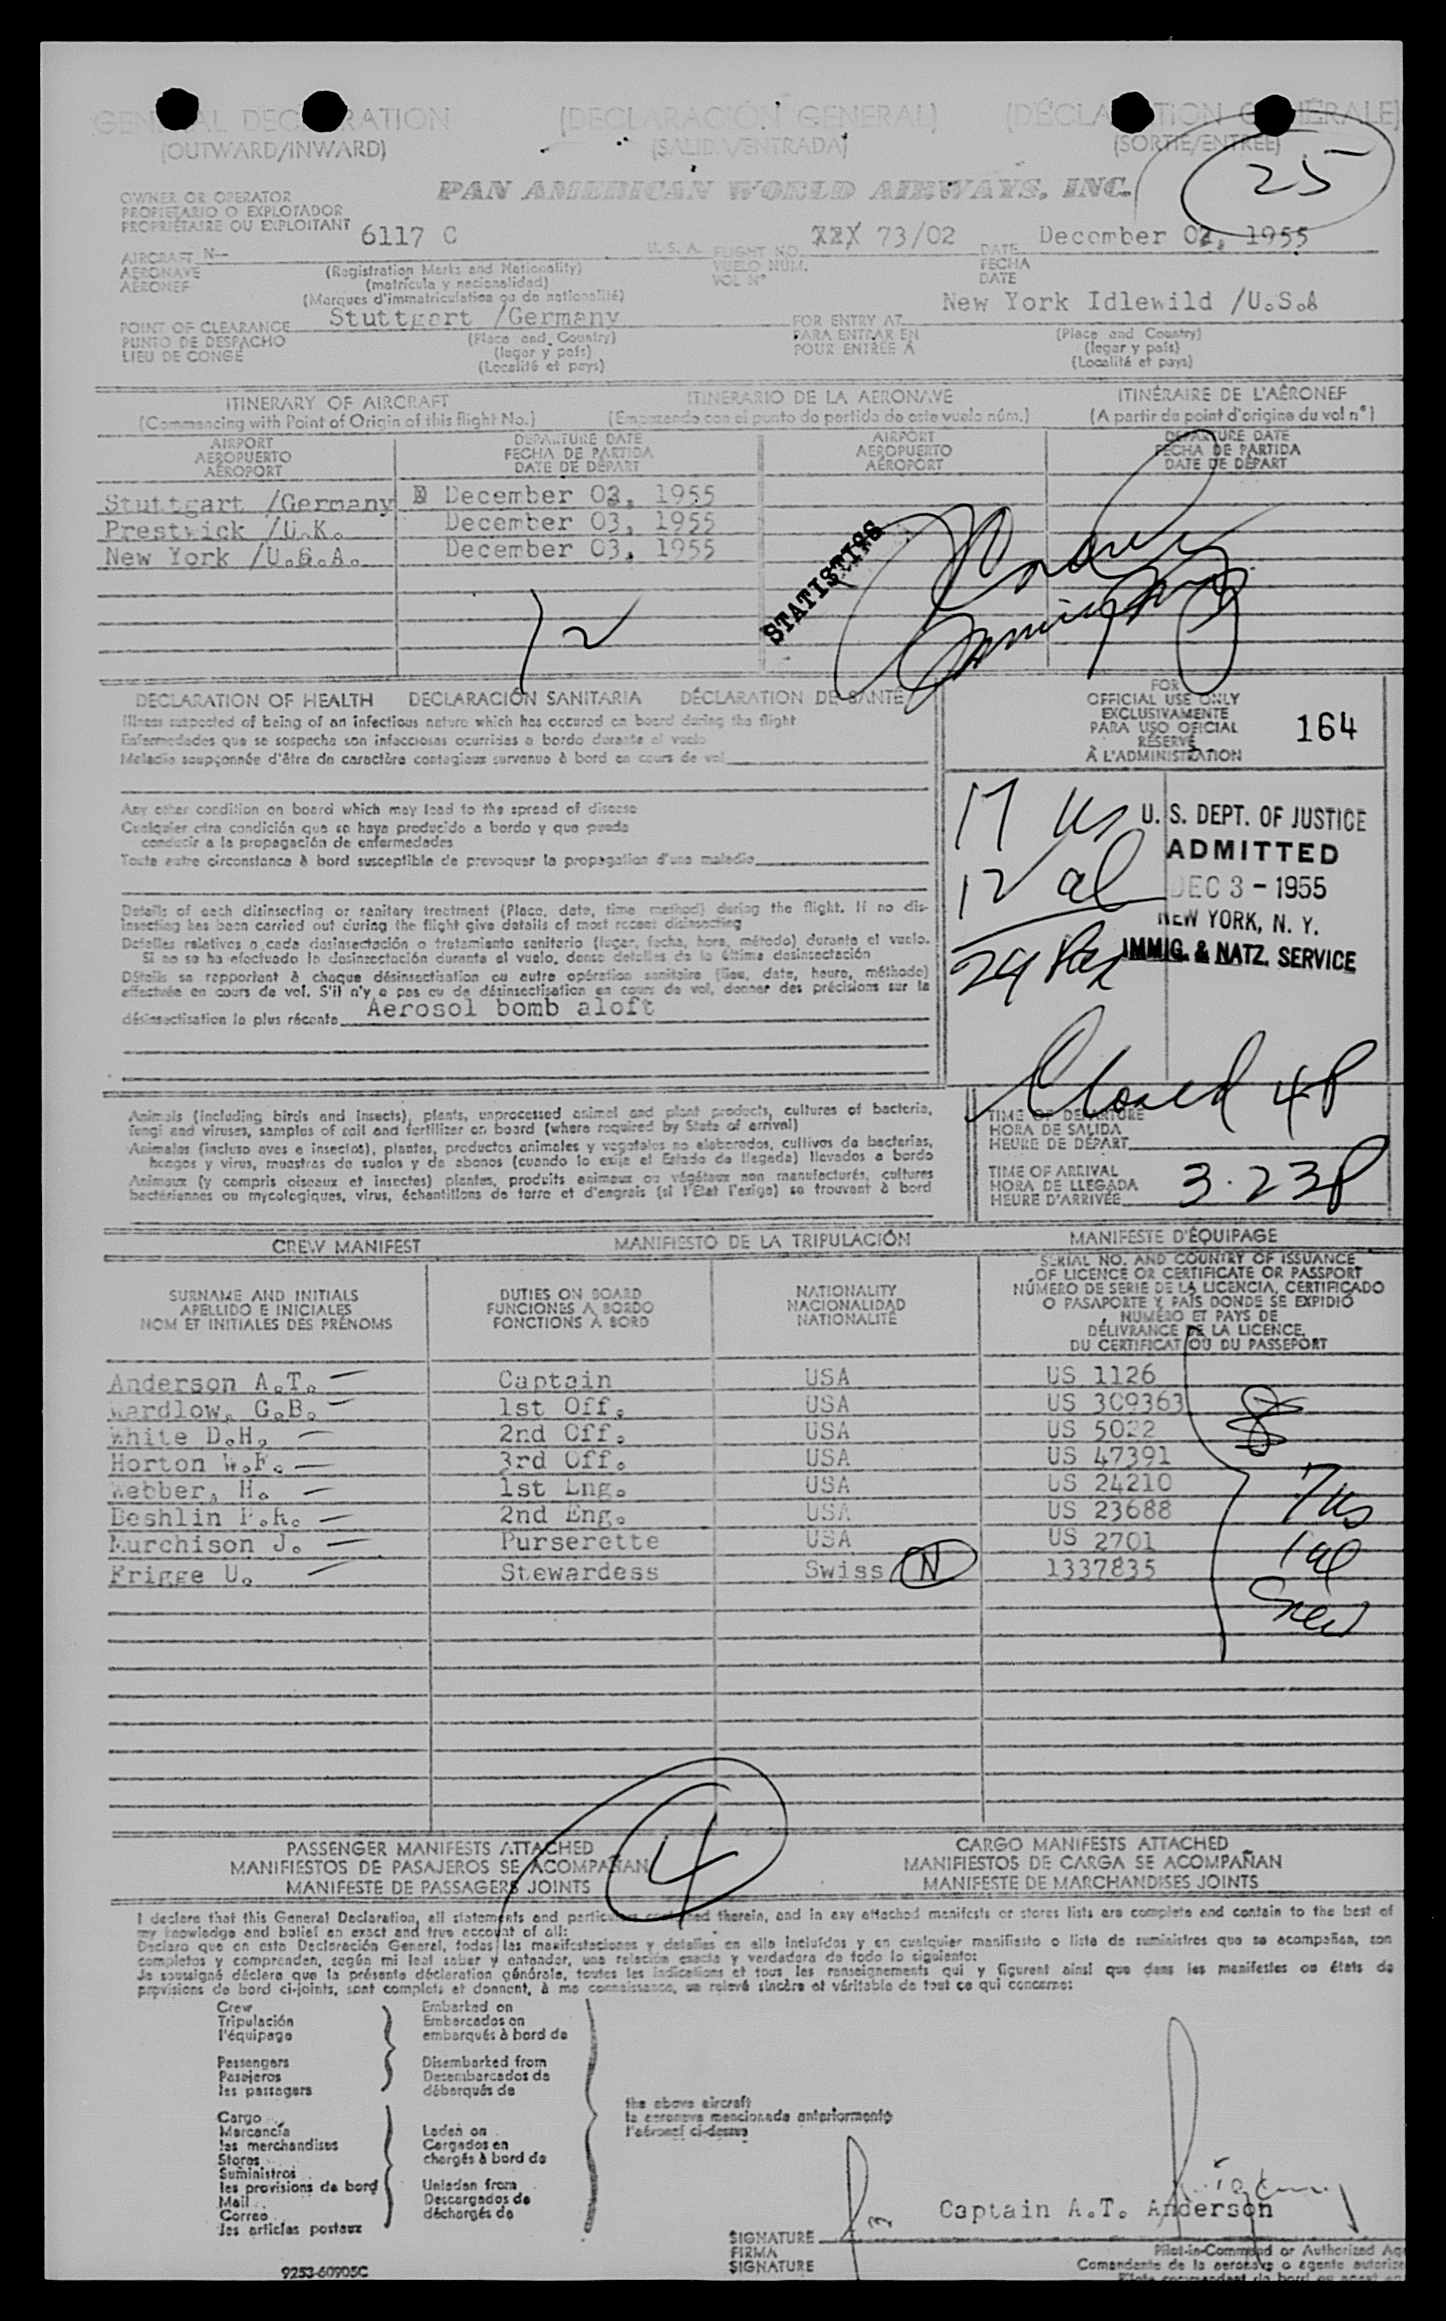 GENERAL DECLARATION (DECLARACIÓN GENERAL) (DÉCLARATION GÉNÉRALE)
(OUTWARD/INWARD) (SALIDA/ENTRADA) (SORTIE/ENTRÉE)
25
OWNER OR OPERATOR
PROPIETARIO O EXPLOTADOR
PROPRIÉTAIRE OU EXPLOITANT
PAN AMERICAN WORLD AIRWAYS, INC.
AIRCRAFT N— 6117 C U. S. A. FLIGHT NO. XXX 73/02 DATE December 02, 1955
AERONAVE (Registration Marks and Nationality) VUELO NUM. FECHA
AÉRONEF (matrícula y nacionalidad) VOL Nº DATE
(Marques d'immatriculation ou de nationalité)
POINT OF CLEARANCE Stuttgart /Germany FOR ENTRY AT New York Idlewild /U.S.A
PUNTO DE DESPACHO (Place and Country) PARA ENTRAR EN (Place and Country)
LIEU DE CONGÉ (lugar y país) POUR ENTRÉE À (lugar y país)
(Localité et pays) (Localité et pays)
ITINERARY OF AIRCRAFT ITINERARIO DE LA AERONAVE ITINÉRAIRE DE L'AÉRONEF
(Commencing with Point of Origin of this flight No.) (Empezando con el punto de partida de este vuelo núm.) (A partir de point d'origine du vol nº)
AIRPORT DEPARTURE DATE AIRPORT DEPARTURE DATE
AEROPUERTO FECHA DE PARTIDA AEROPUERTO FECHA DE PARTIDA
AÉROPORT DATE DE DÉPART AÉROPORT DATE DE DÉPART
Stuttgart /Germany December 03, 1955
Prestwick /U.K. December 03, 1955
New York /U.S.A. December 03, 1955
STATISTICS
DECLARATION OF HEALTH DECLARACIÓN SANITARIA DÉCLARATION DE SANTÉ
Illness suspected of being of an infectious nature which has occured on board during the flight
Enfermedades que se sospecha son infecciosas ocurridas a bordo durante el vuelo
Maladie soupçonnée d'être de caractère contagieux survenue à bord en cours de vol
Any other condition on board which may lead to the spread of disease
Cualquier otra condición que se haya producido a bordo y que pueda
conducir a la propagación de enfermedades
Toute autre circonstance à bord susceptible de provoquer la propagation d'une maladie
Details of each disinsecting or sanitary treatment (Place, date, time method) during the flight. If no dis-
insecting has been carried out during the flight give details of most recent disinsecting
Detalles relativos a cada desinsectación o tratamiento sanitario (lugar, fecha, hora, método) durante el vuelo.
Si no se ha efectuado la desinsectación durante el vuelo, dense detalles de la última desinsectación
Détails se rapportant à chaque désinsectisation ou autre opération sanitaire (lieu, date, heure, méthode)
effectuée en cours de vol. S'il n'y a pas eu de désinsectisation en cours de vol, donner des précisions sur la
désinsectisation la plus récente Aerosol bomb aloft
FOR
OFFICIAL USE ONLY
EXCLUSIVAMENTE
PARA USO OFICIAL
RÉSERVÉ
À L'ADMINISTRATION
164
17 US
12 al
29 Pax
U. S. DEPT. OF JUSTICE
ADMITTED
DEC 3 - 1955
NEW YORK, N. Y.
IMMIG. & NATZ. SERVICE
Closed 4P
Animals (including birds and insects), plants, unprocessed animal and plant products, cultures of bacteria,
fungi and viruses, samples of soil and fertilizer on board (where required by State of arrival)
Animales (incluso aves e insectos), plantas, productos animales y vegetales no elaborados, cultivos de bacterias,
hongos y virus, muestras de suelos y de abonos (cuando lo exija el Estado de llegada) llevados a bordo
Animaux (y compris oiseaux et insectes) plantes, produits animaux ou végétaux non manufacturés, cultures
bactériennes ou mycologiques, virus, échantillons de terre et d'engrais (si l'État l'exige) se trouvant à bord
TIME OF DEPARTURE
HORA DE SALIDA
HEURE DE DÉPART
TIME OF ARRIVAL
HORA DE LLEGADA
HEURE D'ARRIVÉE 3.23P
CREW MANIFEST MANIFIESTO DE LA TRIPULACIÓN MANIFESTE D'ÉQUIPAGE
SURNAME AND INITIALS
APELLIDO E INICIALES
NOM ET INITIALES DES PRÉNOMS
DUTIES ON BOARD
FUNCIONES A BORDO
FONCTIONS À BORD
NATIONALITY
NACIONALIDAD
NATIONALITÉ
SERIAL NO. AND COUNTRY OF ISSUANCE
OF LICENCE OR CERTIFICATE OR PASSPORT
NÚMERO DE SERIE DE LA LICENCIA, CERTIFICADO
O PASAPORTE Y PAÍS DONDE SE EXPIDIÓ
NUMÉRO ET PAYS DE
DÉLIVRANCE DE LA LICENCE,
DU CERTIFICAT OU DU PASSEPORT
Anderson A.T. Captain USA US 1126
Wardlow, G.B. 1st Off. USA US 309363
White D.H. 2nd Off. USA US 5022
Horton W.F. 3rd Off. USA US 47391
Webber, H. 1st Eng. USA US 24210
Beshlin P.R. 2nd Eng. USA US 23688
Murchison J. Purserette USA US 2701
Frigge U. Stewardess Swiss N 1337835
7 US
1 al
Crew
4
PASSENGER MANIFESTS ATTACHED CARGO MANIFESTS ATTACHED
MANIFIESTOS DE PASAJEROS SE ACOMPAÑAN MANIFIESTOS DE CARGA SE ACOMPAÑAN
MANIFESTE DE PASSAGERS JOINTS MANIFESTE DE MARCHANDISES JOINTS
I declare that this General Declaration, all statements and particulars contained therein, and in any attached manifests or stores lists are complete and contain to the best of
my knowledge and belief an exact and true account of all:
Declaro que en esta Declaración General, todas las manifestaciones y detalles en ella incluídos y en cualquier manifiesto o lista de suministros que se acompañan, son
completos y comprenden, según mi leal saber y entender, una relación exacta y verdadera de todo lo siguiente:
Je soussigné déclare que la présente déclaration générale, toutes les indications et tous les renseignements qui y figurent ainsi que dans les manifestes ou états de
provisions de bord ci-joints, sont complets et donnent, à ma connaissance, un relevé sincère et véritable de tout ce qui concerne:
Crew Embarked on
Tripulación Embarcados en
l'équipage embarqués à bord de
Passengers Disembarked from
Pasajeros Desembarcados de
les passagers débarqués de
the above aircraft
la aeronave mencionada anteriormente
l'aéronef ci-dessus
Cargo
Mercancía Laden on
les merchandises Cargados en
Stores chargés à bord de
Suministros
les provisions de bord Unladen from
Mail Descargados de
Correo déchargés de
les articles postaux
Captain A.T. Anderson
SIGNATURE
FIRMA
SIGNATURE
Pilot-in-Command or Authorized Age
Comandante de la aeronave o agente autoriza
9253-60905C